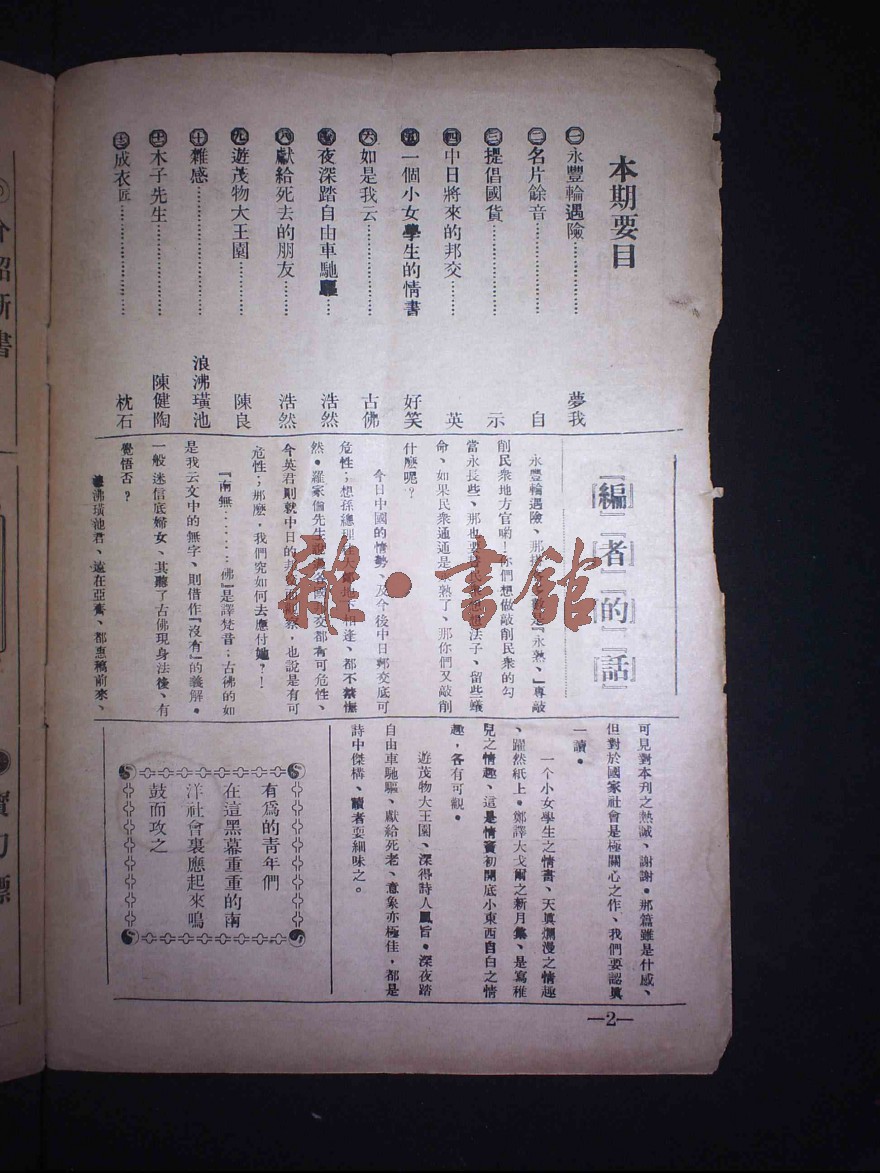 本期要目
㊀永豐輪遇險……………夢我
㊁名片餘音……………自
㊂提倡國貨……………示
㊃中日將來的邦交……英
㊄一個小女學生的情書　好笑
㊅如是我云……………古佛
㊆夜深踏自由車馳驅……浩然
㊇獻給死去的朋友……浩然
㊈遊茂物大王園………陳良
㊉雜感……………浪沸璜池
木子先生……………陳健陶
成衣匠……………枕石
『編』『者』『的』『話』
永豐輪遇險、那
是『永熟、』專敲
削民衆地方官喲！你們想做敲削民衆的勾
當永長些、那也要
法子、留些蟻
命、如果民衆通通是
熟了、那你們又敲削
什麽呢？
今日中國的情勢、及今後中日邦交底可
危性；想孫總理
相逢、都不禁憮
然。羅家倫先生
交都有可危性、
今英君則就中日的邦
觀察，也說是有可
危性；那麽，我們究如何去應付她？！
『南無………佛』是譯梵音；古佛的如
是我云文中的無字、則借作『沒有』的義解。
一般迷信底婦女、其聽了古佛現身法後、有
覺悟否？
浪沸璜池君、遠在亞齊、都惠稿前來、
可見對本刊之熱誠、謝謝。那篇雖是什感、
但對於國家社會是極關心之作、我們要認眞
一讀。
一个小女學生之情書、天眞爛漫之情趣
、躍然紙上。鄭譯大戈爾之新月集、是寫稚
兒之情趣、這是情竇初開底小東西自白之情
趣，各有可觀。
遊茂物大王園、深得詩人風旨。深夜踏
自由車馳驅、獻給死老、意象亦極佳，都是
詩中傑構、讀者要細味之。
有爲的青年們
在這黑幕重重的南
洋社會裏應起來鳴
鼓而攻之
—2—
介紹新書
雜·書館